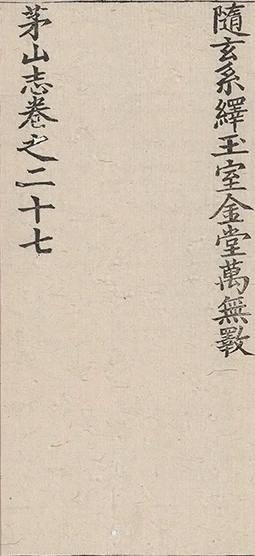 隨玄系繹玉室金堂萬無斁
茅山志卷之二十七